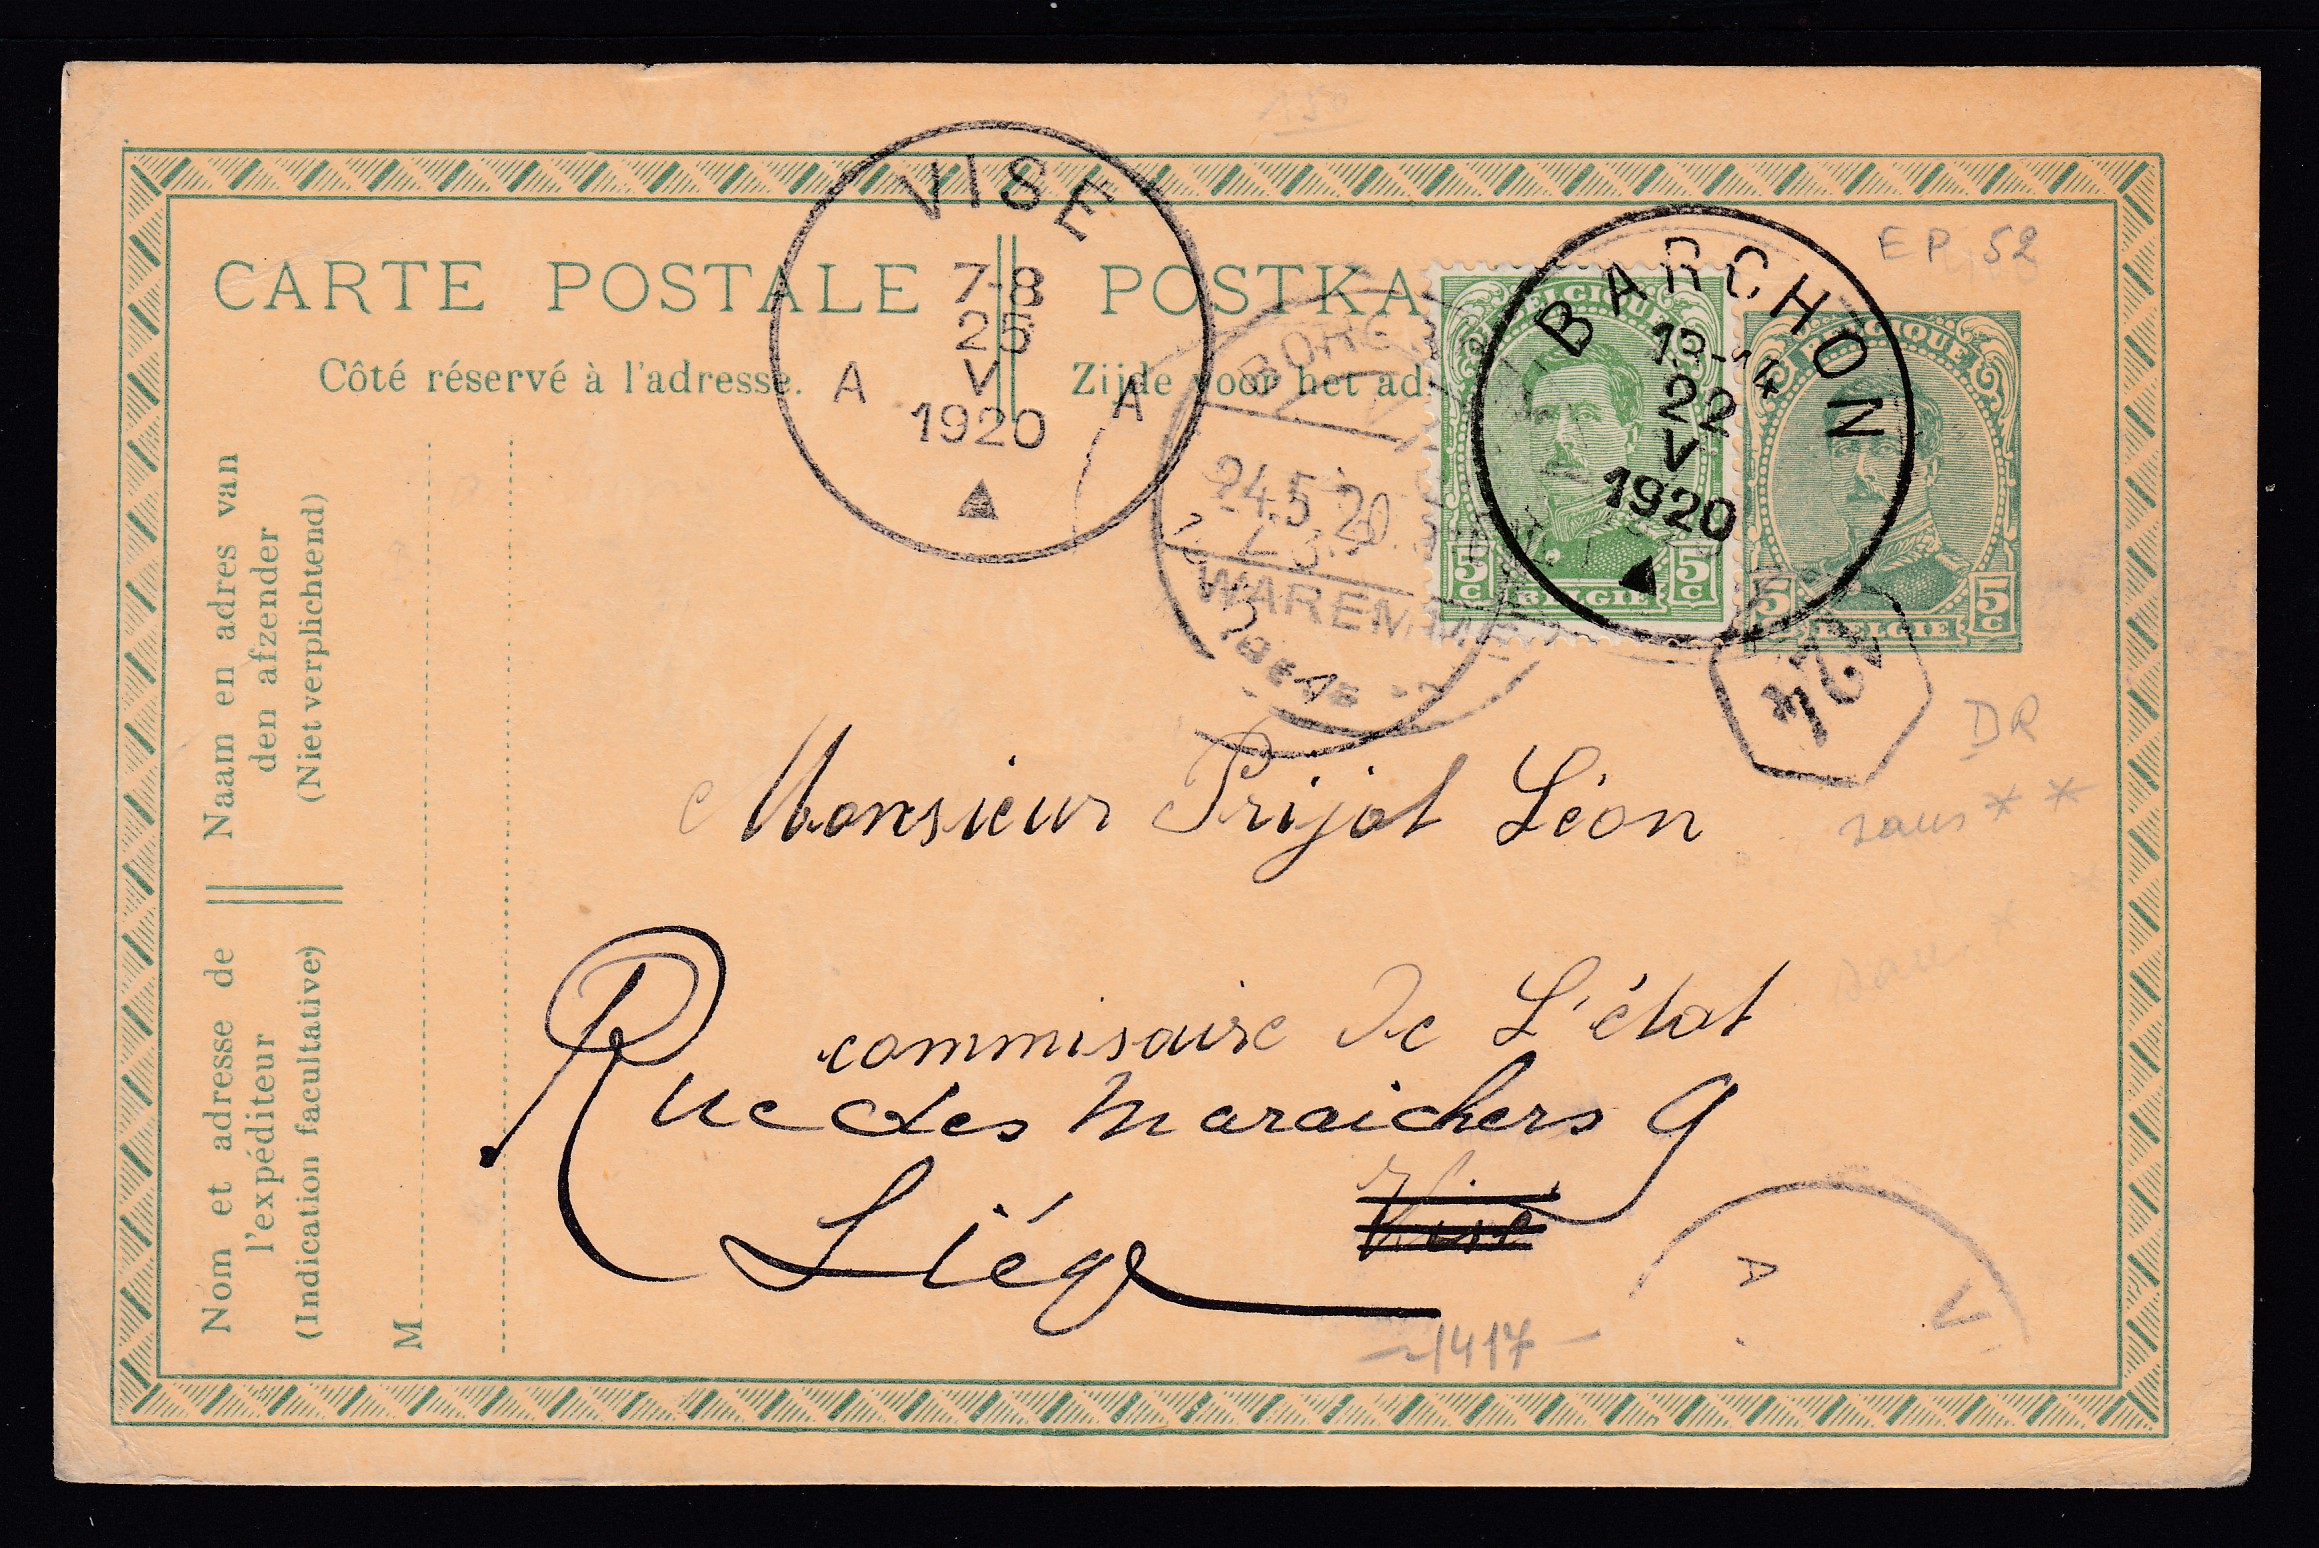 VISE
7-8
25
V
1920
A A
BARCHON
13-14
22
V
1920
EP 52
CARTE POSTALE
POSTKA
Côté réservé à l'adresse.
Zijde voor het ad
BELGIQUE
5c 5c
BELGIË
BELGIQUE
5c 5c
BELGIE
24.5.20.
WAREMME
DR
sans * *
Monsieur Prijot Léon
commisaire de L'état
Rue des Maraichers 9
Visé
Liége
1417
A
V
Naam en adres van
den afzender
(Niet verplichtend)
Nom et adresse de
l'expéditeur
(Indication facultative)
M